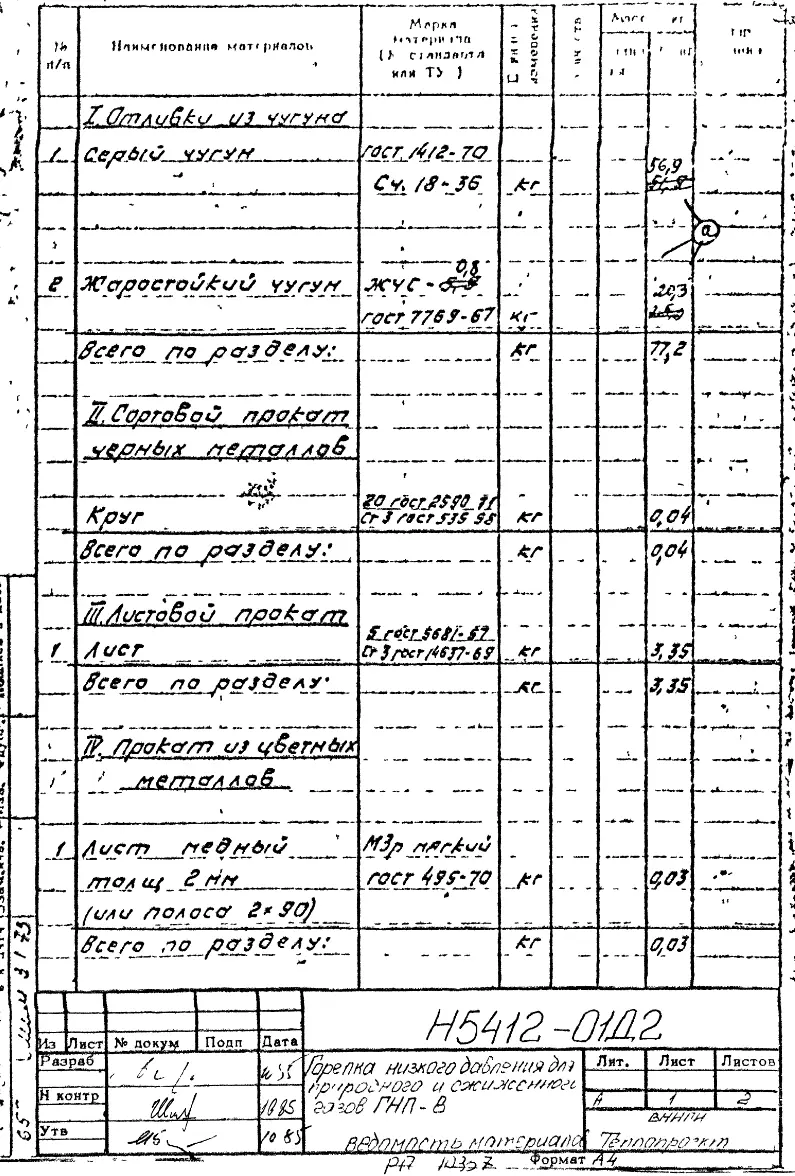 № п/п Наименование материалов Марка материала (№ стандарта или ТУ) измерения
I. Отливки из чугуна
1 Серый чугун гост. 1412-70 56,9
Сч. 18-36 кг
а
0,8
2 Жаростойкий чугун ЖЧС - 5,5 20,3
гост 7769-67 кг
Всего по разделу: кг 77,2
II. Сортовой прокат
черных металлов
20 гост 2590-71
Круг Ст 3 гост 535-58 кг 0,04
Всего по разделу: кг 0,04
III. Листовой прокат
5 гост 5681-57
1 Лист Ст 3 гост 14637-69 кг 3,35
Всего по разделу: кг 3,35
IV. Прокат из цветных
металлов
1 Лист медный М3р мягкий
толщ 2 мм гост 495-70 кг 0,03
(или полоса 2×90)
Всего по разделу: кг 0,03
Н5412-01Д2
Из Лист № докум Подп Дата
Разраб
Н контр 10 85
Утв 10 85
Горелка низкого давления для
природного и сжиженного
газов ГНП-В
ведомость материалов
Лит. Лист Листов
А 1 2
ВНИПИ
Теплопроект
Формат А4